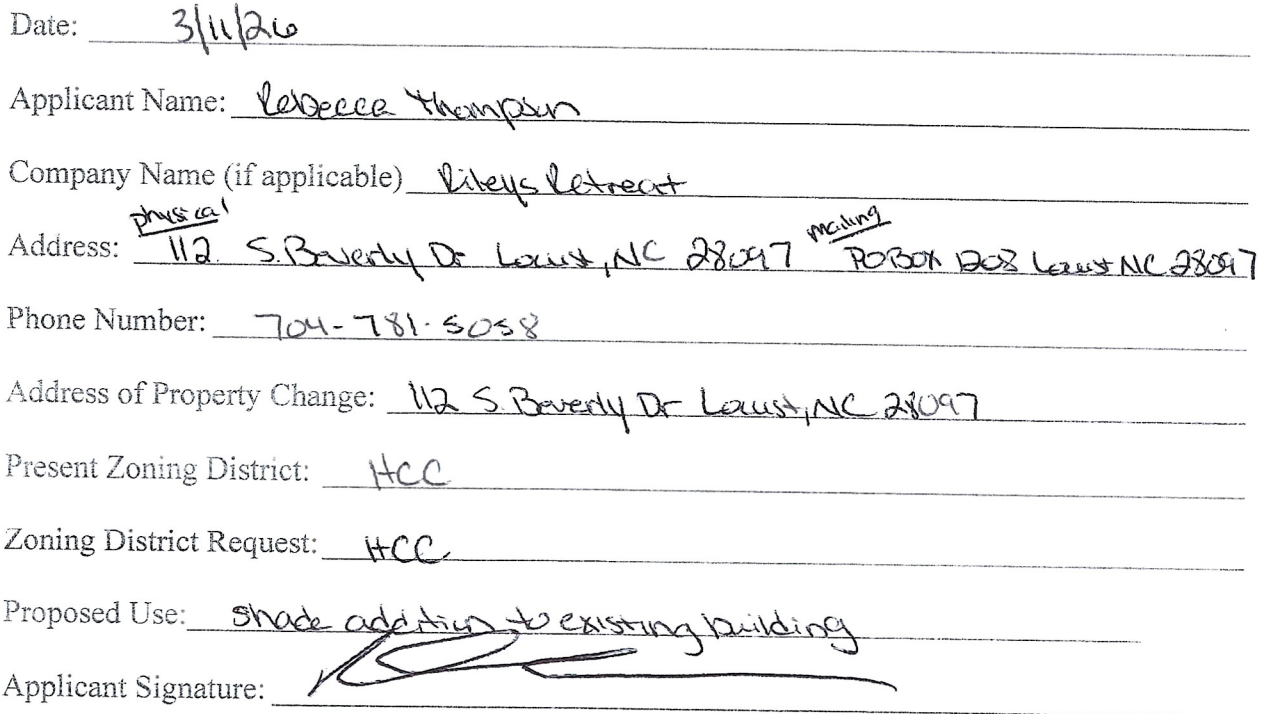 Date: 3/11/26
Applicant Name: Rebecca Thompson
Company Name (if applicable) Rileys Retreat
physical mailing
Address: 112 S. Beverly Dr Locust, NC 28097 PO BOX 1208 Locust NC 28097
Phone Number: 704-781-5058
Address of Property Change: 112 S. Beverly Dr Locust, NC 28097
Present Zoning District: HCC
Zoning District Request: HCC
Proposed Use: shade addition to existing building
Applicant Signature: